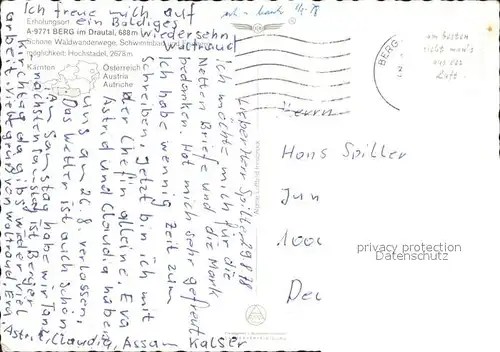 Ich freue mich auf
ein Baldiges
Wiedersehn
Waltraud
Erholungsort
A-9771 BERG im Drautal, 688 m
Schöne Waldwanderwege, Schwimmbad
möglichkeit: Hochstadel, 2678 m
Kärnten
Österreich
Austria
Autriche
BERG
am besten
nicht man's
aus der
Luft.
29.8.78
Lieber Herr Spiller
Ich möchte mich für die
Netten Briefe und die Mark
bedanken. Hat mich sehr gefreut
Ich habe wenig Zeit zum
Schreiben. Jetzt bin ich mit
der Chefin alleine. Eva
Astrid und Claudia haben
uns am 26.8. verlassen.
Das Wetter ist auch schön
Am Samstag habe wir Tanz
nächsten Samstag ist Berger
Kirchtag da gibs wieder viel
arbeit. viele grüß von Waltraud, Eva
Astrid, Claudia, Assam Kalser
Herrn
Hans Spiller
Jun
1000
privacy protection
Datenschutz